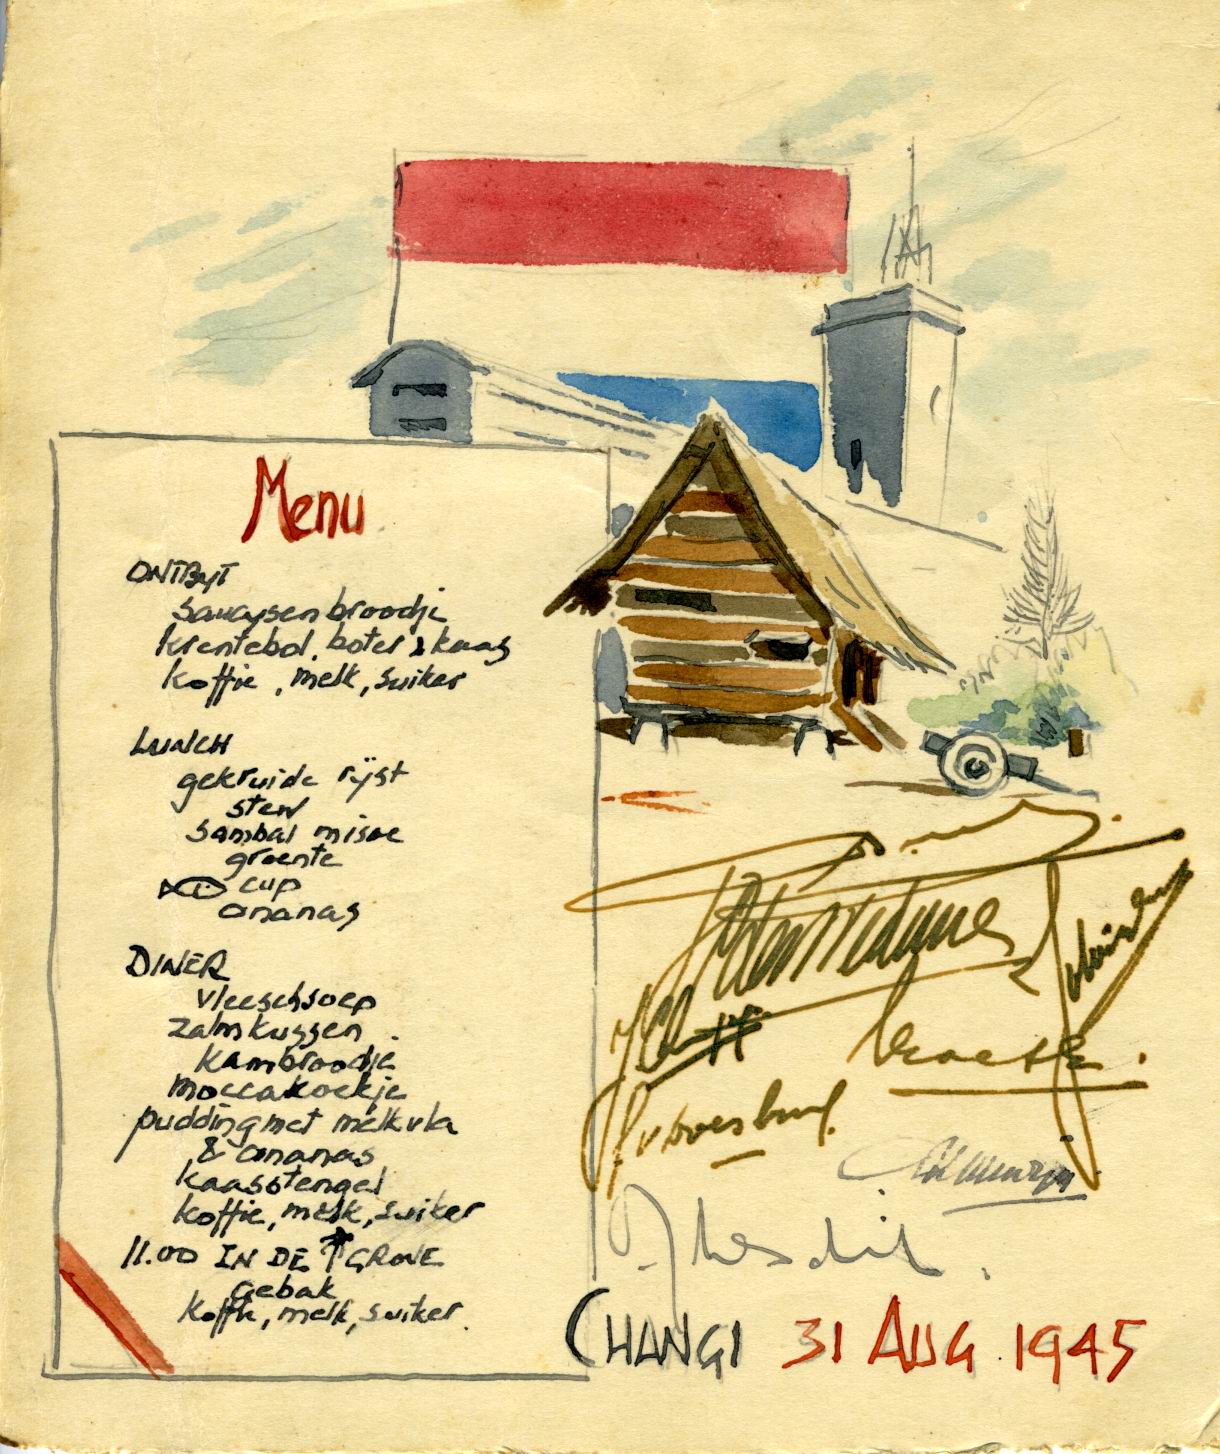 Menu
ONTByT
saucysenbroodje
krentebol, boter & kaas
koffie, melk, suiker
LUNCH
gekruide rijst
stew
sambal misoe
groente
cup
ananas
DINER
vleeschsoep
zalmkussen
kambroodje
moccakoekje
pudding met melkvla
& ananas
kaasstengel
koffie, melk, suiker
11.00 IN DE GROVE
gebak
koffie, melk, suiker.
CHANGI 31 AUG 1945